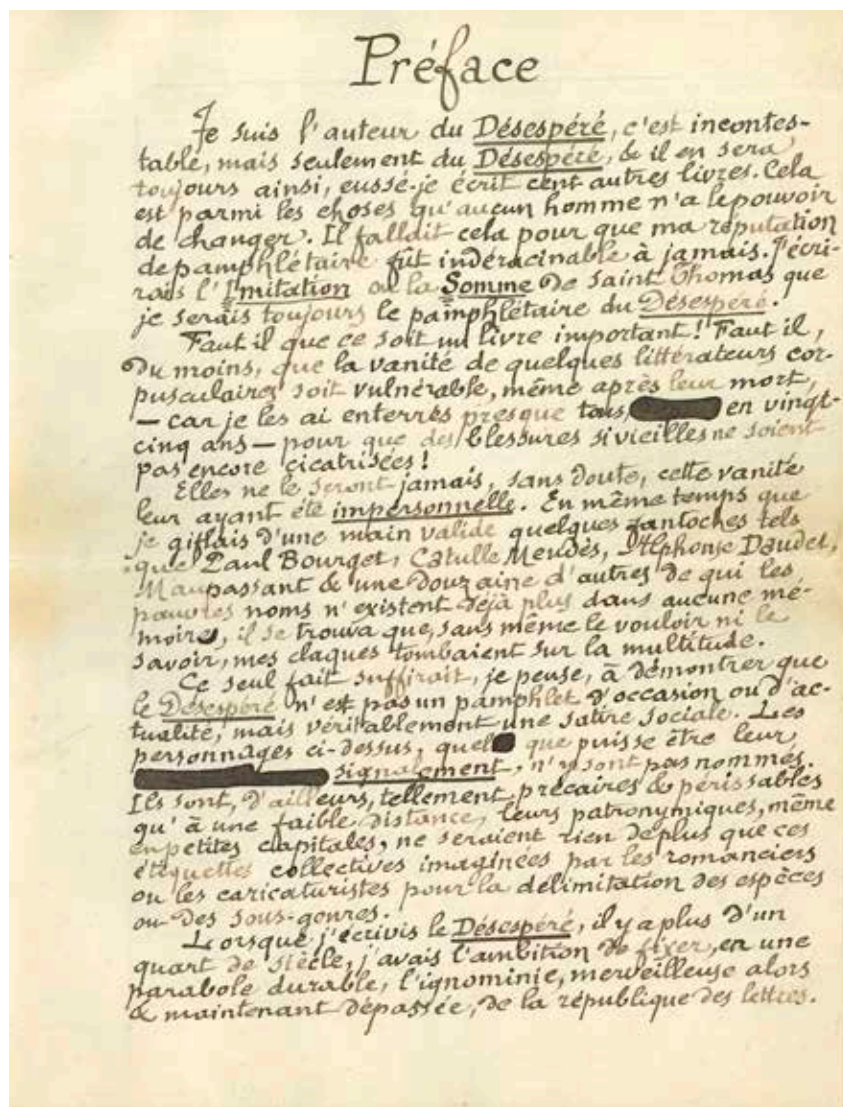 Préface
Je suis l'auteur du Désespéré, c'est incontes-
table, mais seulement du Désespéré, & il en sera
toujours ainsi, eussé-je écrit cent autres livres. Cela
est parmi les choses qu'aucun homme n'a le pouvoir
de changer. Il fallait cela pour que ma réputation
de pamphlétaire fût indéracinable à jamais. J'écri-
rais l'Imitation ou la Somme de saint Thomas que
je serais toujours le pamphlétaire du Désespéré.
Faut il que ce soit un livre important! Faut il,
du moins, que la vanité de quelques littérateurs cor-
pusculaires soit vulnérable, même après leur mort,
— car je les ai enterrés presque tous, en vingt-
cinq ans — pour que des blessures si vieilles ne soient
pas encore cicatrisées!
Elles ne le seront jamais, sans doute, cette vanité
leur ayant été impersonnelle. En même temps que
je giflais d'une main valide quelques fantoches tels
que Paul Bourget, Catulle Mendès, Alphonse Daudet,
Maupassant & une douzaine d'autres de qui les
pauvres noms n'existent déjà plus dans aucune mé-
moire, il se trouva que, sans même le vouloir ni le
savoir, mes claques tombaient sur la multitude.
Ce seul fait suffirait, je pense, à démontrer que
le Désespéré n'est pas un pamphlet d'occasion ou d'ac-
tualité, mais véritablement une satire sociale. Les
personnages ci-dessus, quel que puisse être leur
signalement, n'y sont pas nommés.
Ils sont, d'ailleurs, tellement précaires & périssables
qu'à une faible distance, leurs patronymiques, même
en petites capitales, ne seraient rien de plus que ces
étiquettes collectives imaginées par les romanciers
ou les caricaturistes pour la délimitation des espèces
ou des sous-genres.
Lorsque j'écrivis le Désespéré, il y a plus d'un
quart de siècle, j'avais l'ambition de fixer, en une
parabole durable, l'ignominie, merveilleuse alors
& maintenant dépassée, de la république des lettres.